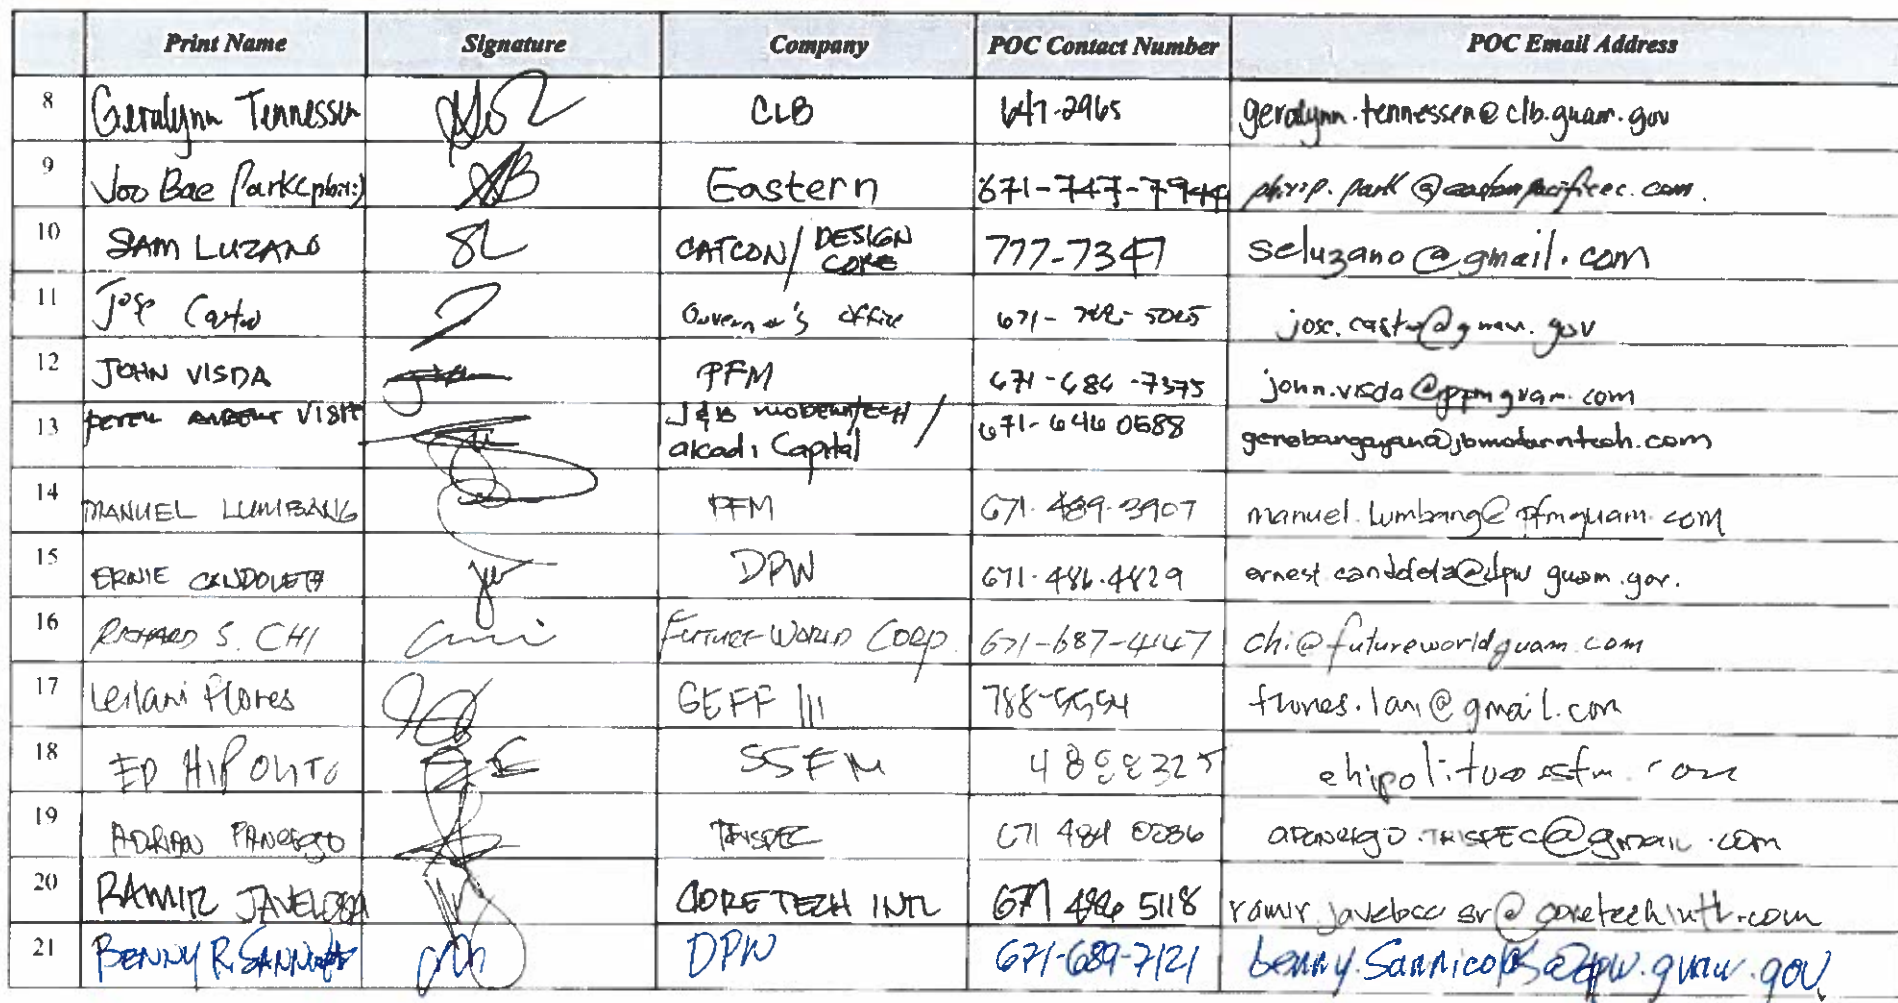 Print Name Signature Company POC Contact Number POC Email Address
8 Geralynn Tennessen CLB 647-2965 geralynn.tennessen@clb.guam.gov
9 Joo Bae Park Eastern 671-747-7944 philip.park@easternpacificec.com.
10 SAM LUZANO CATCON/ DESIGN CORE 777-7347 seluzano@gmail.com
11 Jose Castro Governor's Office 671- jose.castro@guam.gov
12 JOHN VISDA PFM 671-686-7375 john.visda@pfmguam.com
13 PETER VISIT J&B MODERNTECH/ akadi Capital 671-646 0588 genobangayan@jbmoderntech.com
14 MANUEL LUMBANG PFM 671.489.3907 manuel.lumbang@pfmguam.com
15 ERNIE CANDOLETA DPW 671.486.4829 ernest.candoleta@dpw.guam.gov.
16 RICHARD S. CHI FUTURE WORLD CORP. 671-687-4447 chi@futureworldguam.com
17 Leilani Flores GEFF III 788-5554 flores.lani@gmail.com
18 ED HIPOLITO SSFM 4888325 ehipolito@ssfm.com
19 ADRIAN PANGELGO TRISPEC 671 484 0286 TRISPEC@gmail.com
20 RAMIR JAVELOSA CORETECH INTL 671 486 5118 ramir.javelosa sr@coretechintl.com
21 BENNY R. SANNICOLAS DPW 671-689-7121 benny.sannicolas@dpw.guam.gov